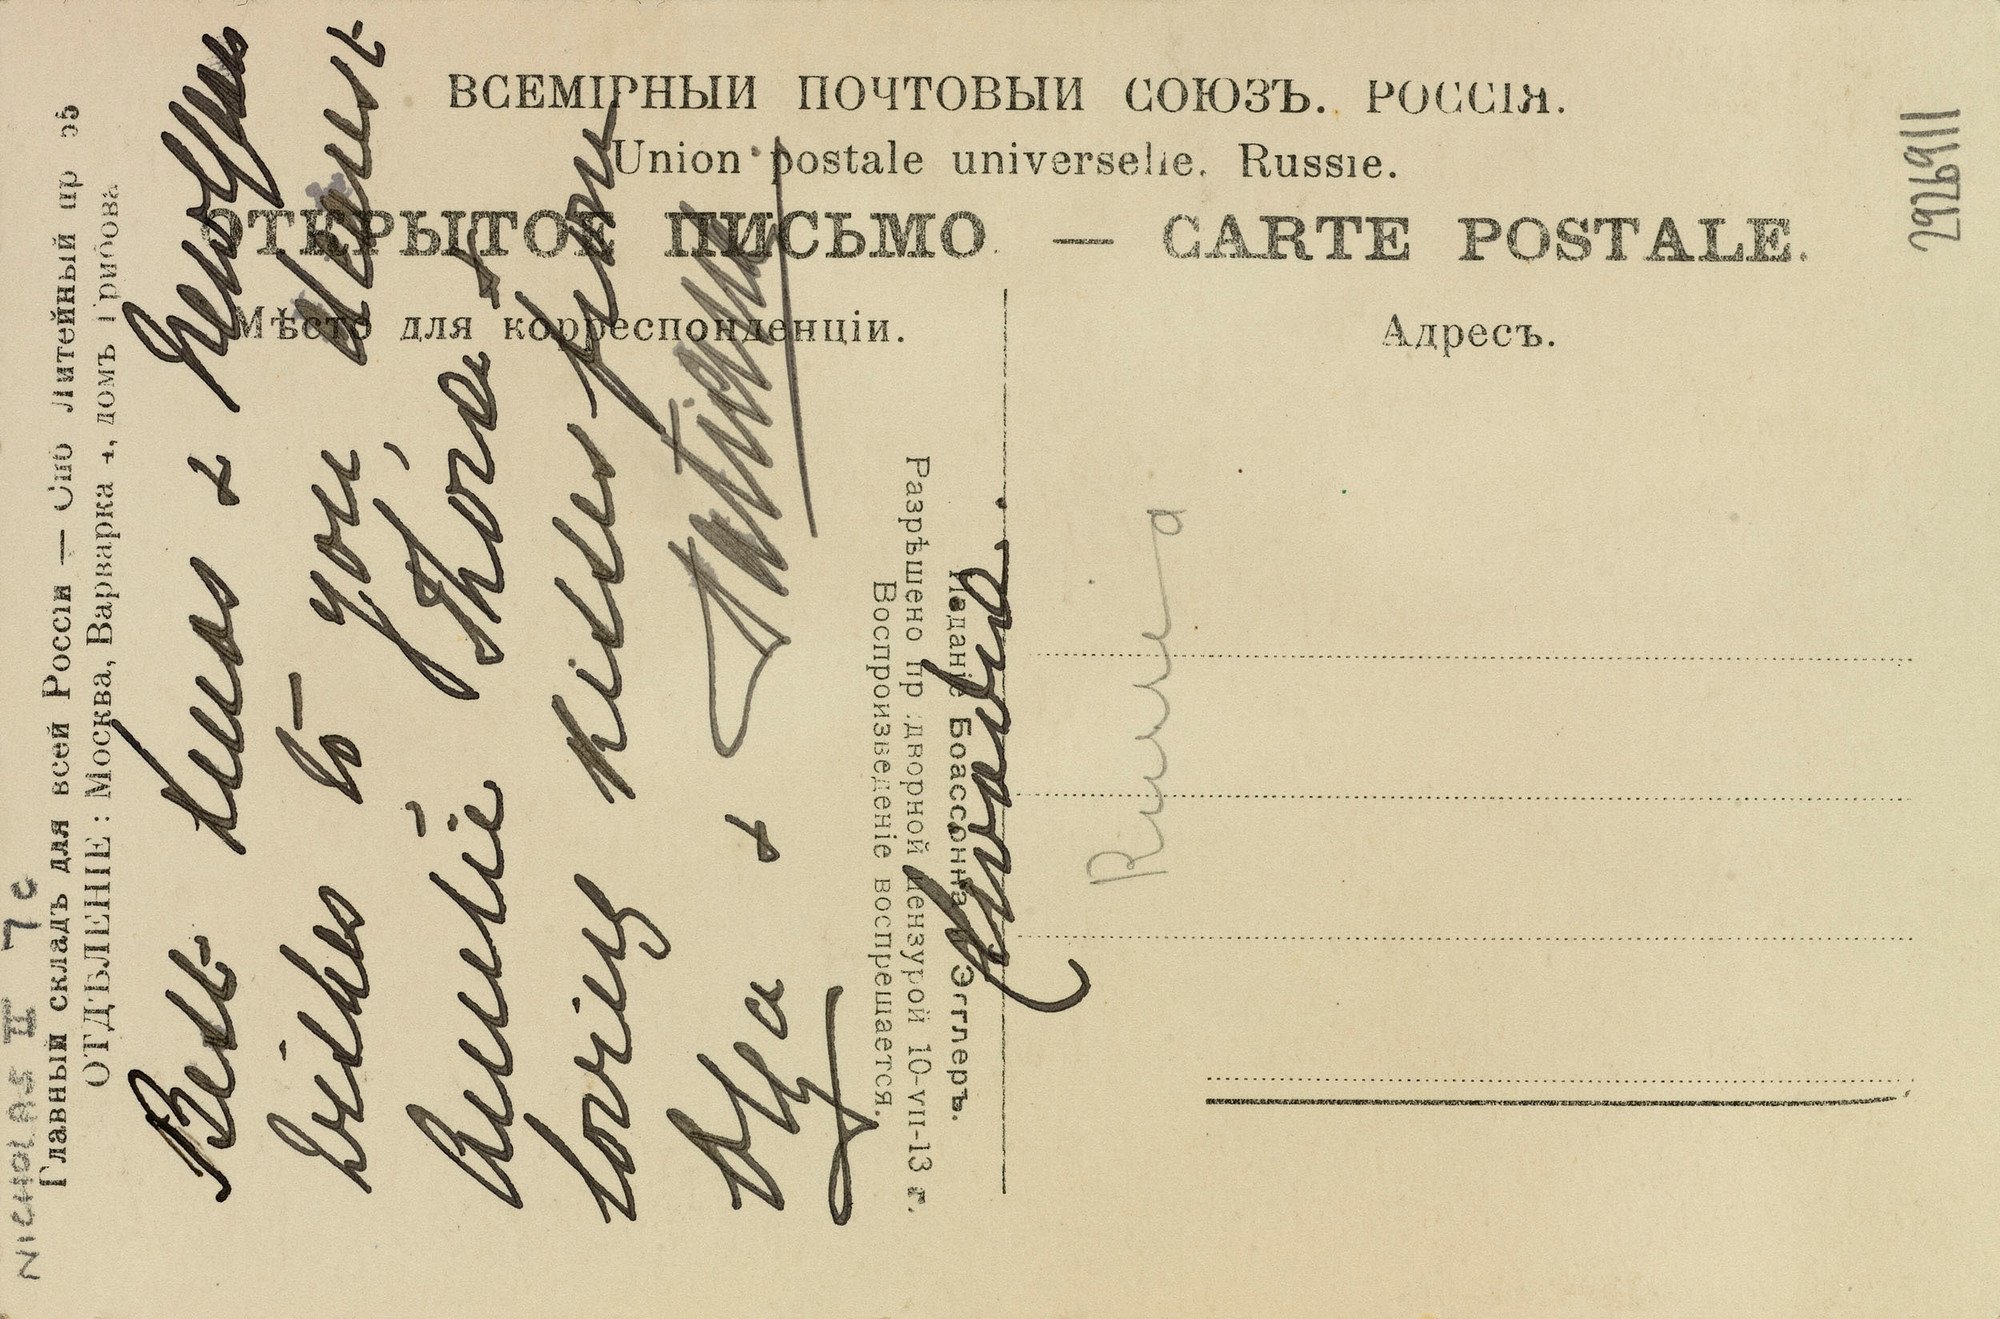 ВСЕМІРНЫЙ ПОЧТОВЫЙ СОЮЗЪ. РОССІЯ.
Union postale universelle. Russie.
ОТКРЫТОЕ ПИСЬМО — CARTE POSTALE.
Мѣсто для корреспонденціи.
Адресъ.
2926911
NICHOLAS II 7c
Главный складъ для всей Россіи — Спб Литейный пр
ОТДѢЛЕНІЕ: Москва, Варварка, домъ Грибова
Best &
wishes to you,
Thora &
loving kisses from
Olga & Tatiana
Воспроизведеніе воспрещается.
Разрѣшено пр дворной цензурой 10-VII-13 г.
Изданіе Боассонна и Эгглеръ.
Livadia.